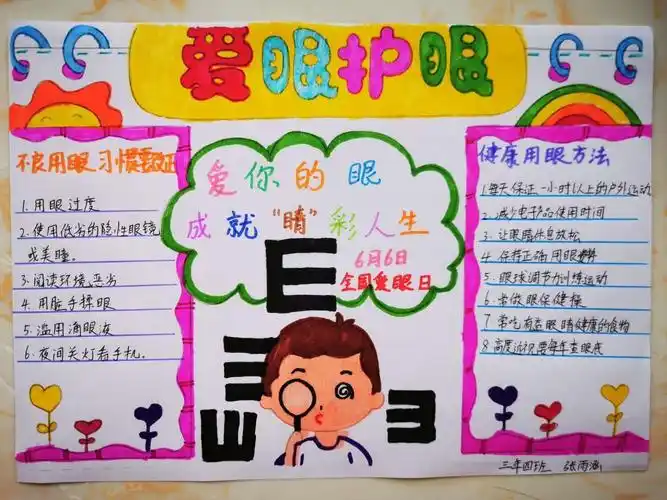 爱眼护眼
不良用眼习惯
1.用眼过度
2.使用低劣的隐性眼镜
或美瞳。
3.阅读环境恶劣
4.用脏手揉眼
5.滥用滴眼液
6.夜间关灯看手机。
爱你的眼
成就"睛"彩人生
6月6日
全国爱眼日
E
E
E
E
健康用眼方法
1.每天保证一小时以上的户外运动
2.减少电子产品使用时间
3.让眼睛休息放松
4.保持正确用眼
5.眼球调节力训练运动
6.常做眼保健操
7.常吃有益眼睛健康的食物
8.高度近视要每年查眼底
三年四班 张雨涵